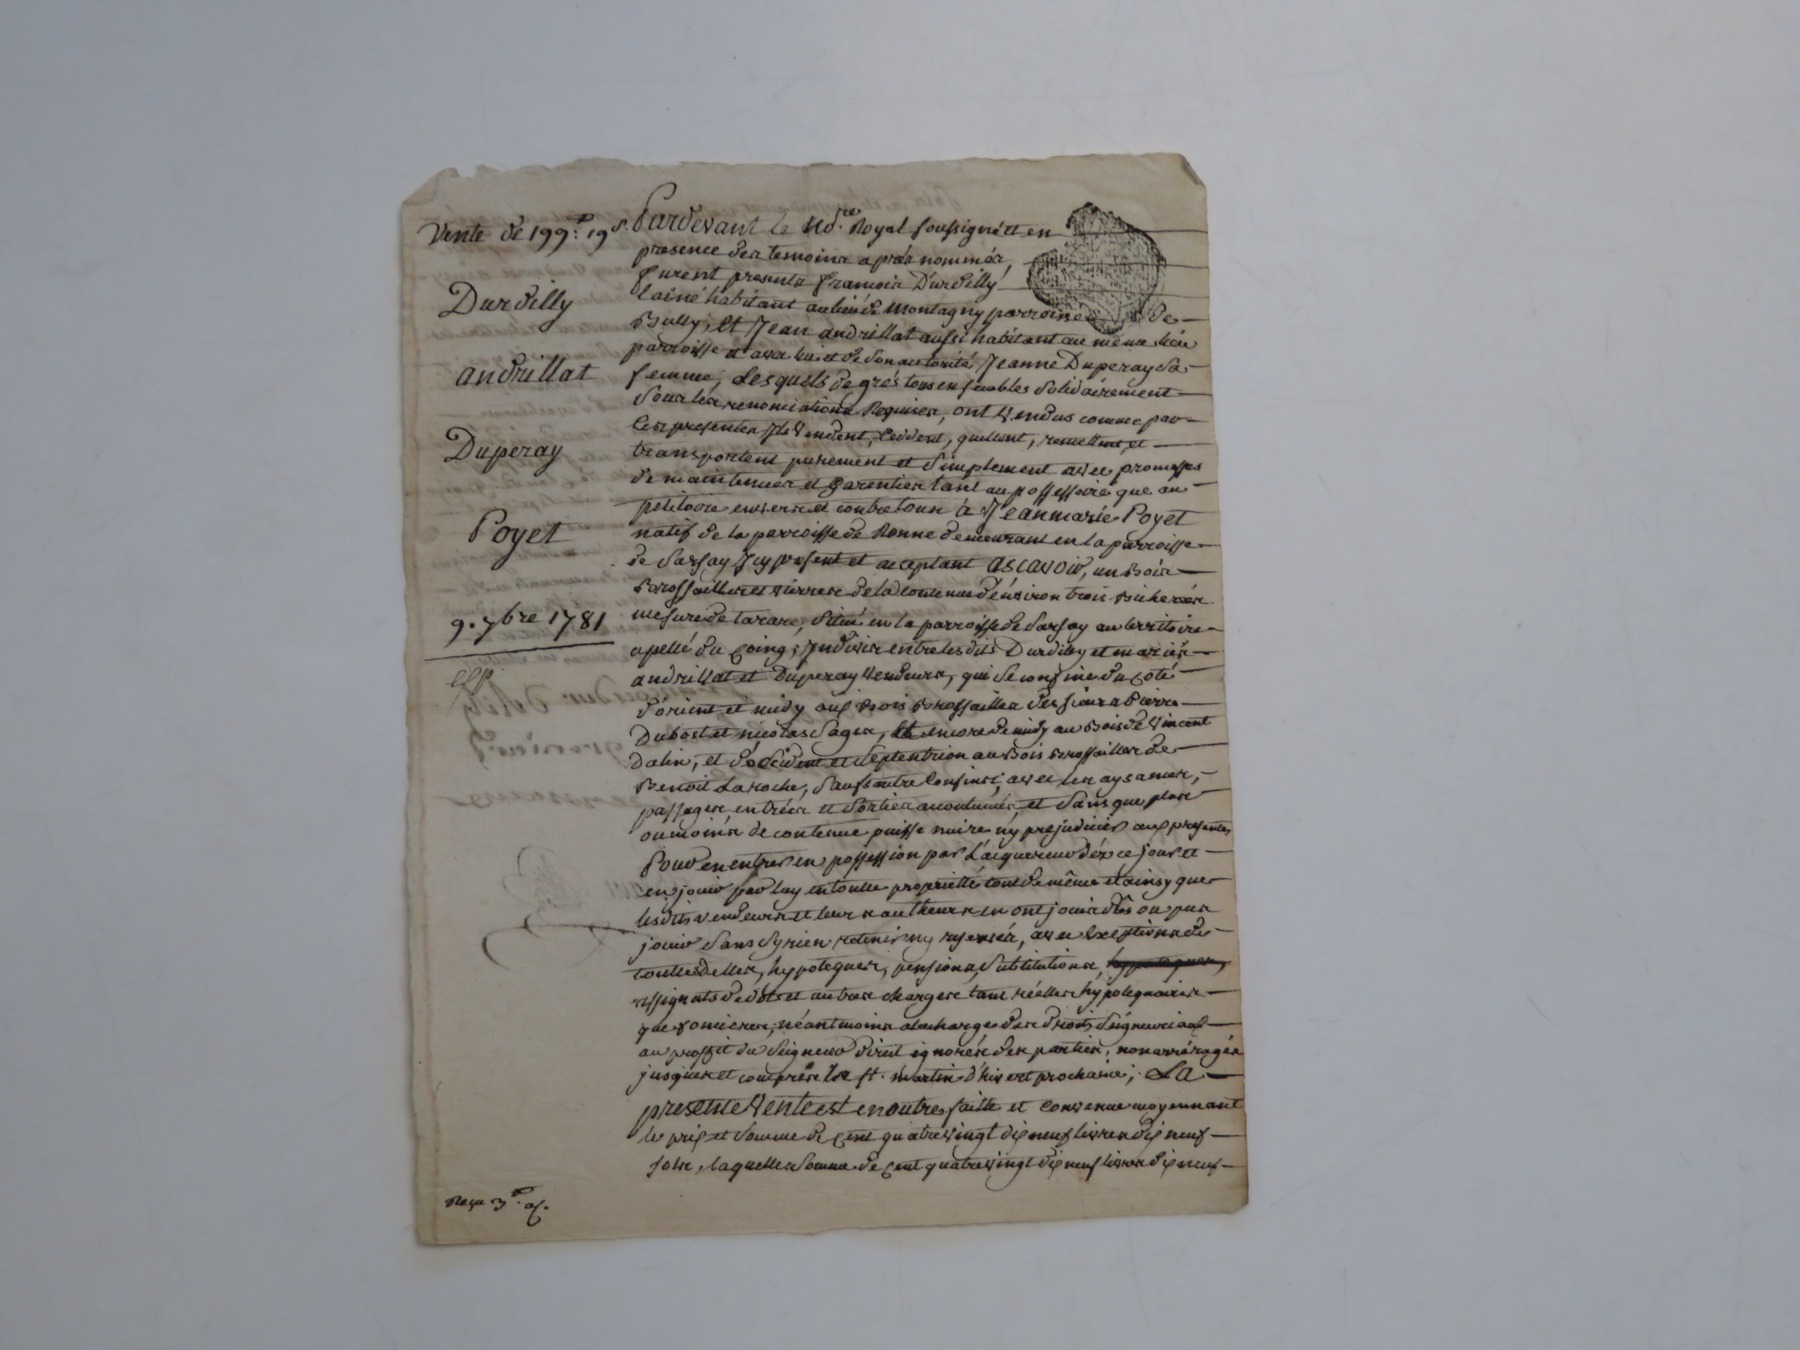 Vente de 199.tt 19 s.
Durdilly
andrillat
Duperay
Poyet
9. 7bre 1781
Pardevant le No.re Royal soussigné et en
presence des temoins aprés nommés,
furent presents francois Durdilly
l'ainé habitant au lieu de Montagny parroisse de
Bully, et Jean andrillat aussi habitant au même lieu
parroisse et avec lui et de son autorité Jeanne Duperay sa
femme, Lesquels de grés tous ensembles solidairement
sous les renonciations Requises, ont Vendus comme par
ces presentes ils Vendent, ceddent, quittent, remettent et
transportent purement et simplement avec promesses
de maintenir et garentier tant au possessoire que au
petitoire envers et contre tous à Jeanmarie Poyet
natif de la parroisse de Ronne demeurant en la parroisse
de Sarsay Icy present et aceptant ascavoir, un Bois
Brossailles et vivres de la contenue d'énviron trois Bicherées
mesure de tarare, Situé en la parroisse de Sarsay au territoire
apellé du Coing, Indivis entre lesdits Durdilly et mariés
andrillat et Duperay Vendeurs, qui se confine du coté
d'órient et midy aux Bois Brossailles des sieurs Pierre
Dubost et nicolas Sager, et encore de midy au Bois de Vincent
Dalin, et d'óccident et septentrion au Bois Brossailles de
Benoit Laroche, sauf autre Confins; avec les aysances,
passages, entrées et sorties acoutumés et sans que plus
ou moins de contenue puisse nuire ny prejudicier aux presentes
Pour en entrer en possession par L'acquereur déz ce jour et
en jouir par luy en toutte proprietté tout de même et ainsy que
lesdits vendeurs et leurs autheurs en ont jouis dûs ou pus
jouir sans sy rien retenir ny reserver, avec Exeption de
touttes dettes, hypoteques, pensions, substitutions,
assignats de dôt et autres charges tant réelles hypotequaires
que foncieres; néantmoins a la charge des droits Seigneuriaux
au proffit du Seigneur direct ignorés des parties, non arréragés
jusques et compris la st. martin d'hivert prochaine; La
presente Vente est en outres faitte et convenue moyennant
le prix et somme de Cent quatrevingt dix neuf livres dix neuf
sols, laquelle somme de Cent quatrevingt dix neuf livres dix neuf
Reçu 3.tt